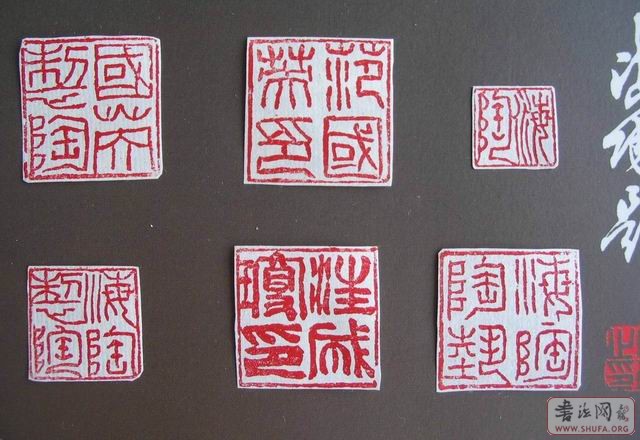 國
製陶
范國
印
海陶
海陶
製陶
汪成
瓊印
海陶
陶藝
書法网
WWW.SHUFA.ORG